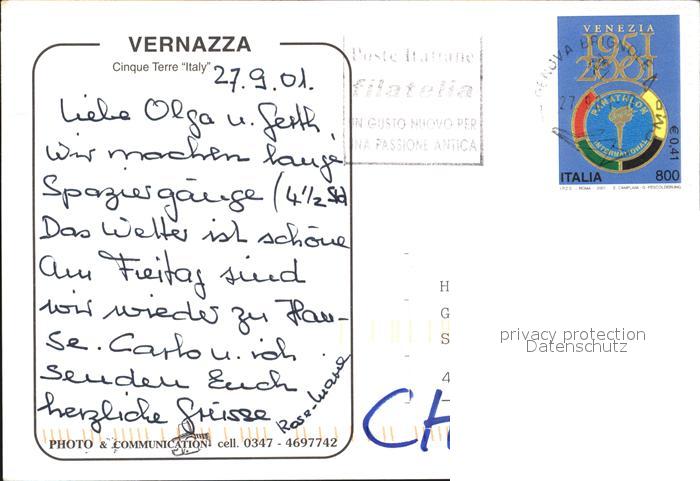 VERNAZZA
Cinque Terre "Italy"
27.9.01.
Liebe Olga u. Gerth,
Wir machen lange
Spaziergänge (4 1/2 Std
Das Wetter ist schöne
Am Freitag sind
wir wieder zu Hau-
se. Carlo u. ich
senden Euch
herzliche Grüsse
Rose-Marie
PHOTO & COMMUNICATION cell. 0347 - 4697742
Poste Italiane
filatelia
UN GUSTO NUOVO PER
UNA PASSIONE ANTICA
GENOVA BRIGNOLE
27
VENEZIA
1951
2001
PANATHLON
INTERNATIONAL
€ 0,41
ITALIA 800
I.P.Z.S. - ROMA - 2001
H
G
S
4
CH
privacy protection
Datenschutz